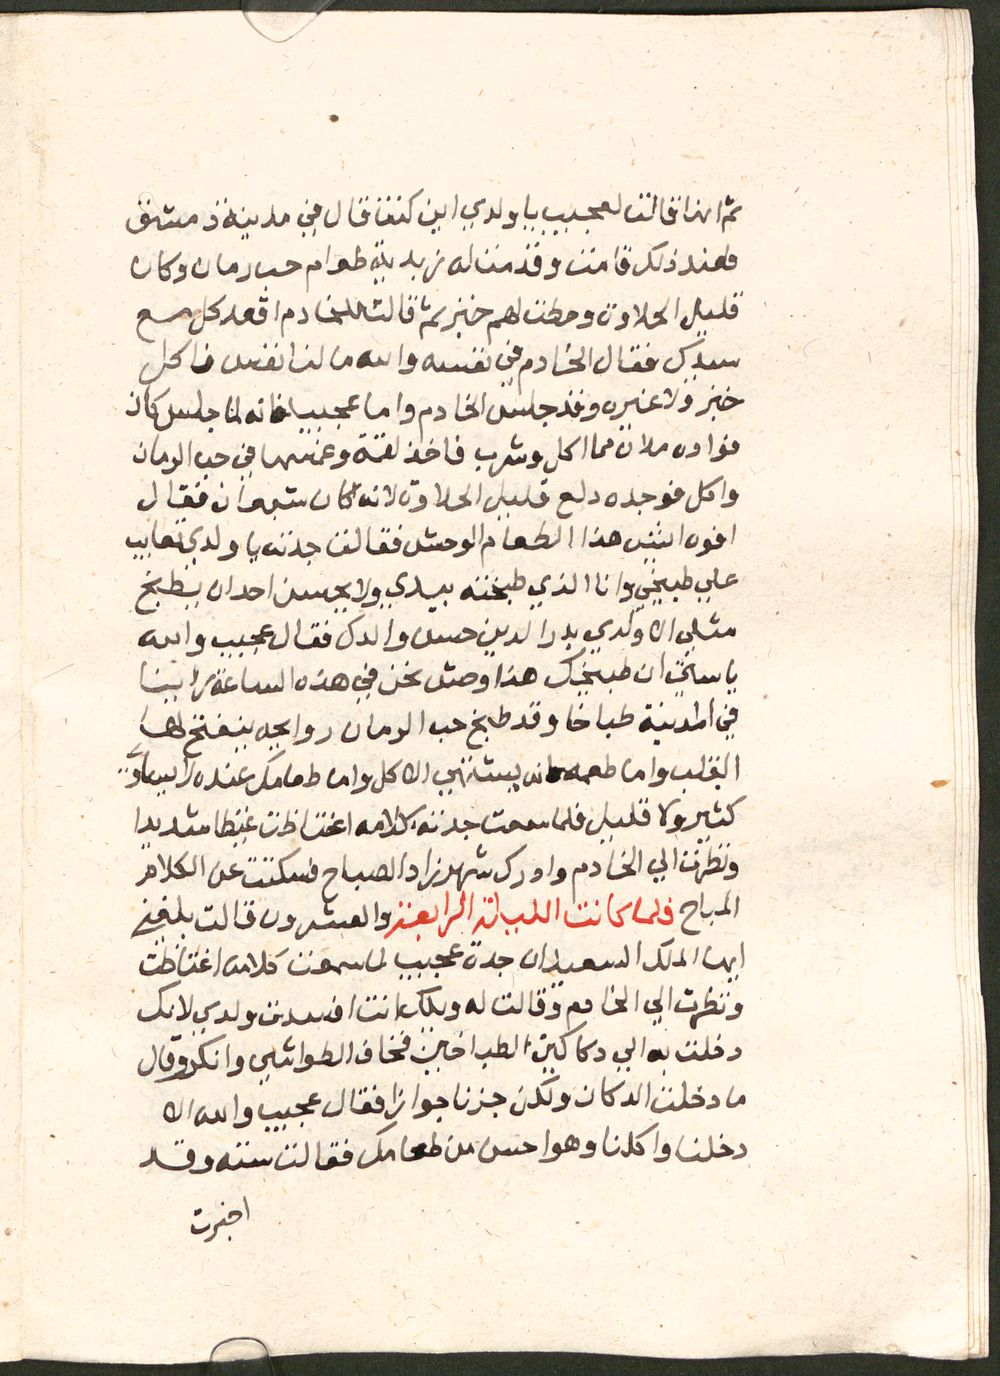 ثم انها قالت لعجيب يا ولدي اين كنت قال في مدينة دمشق
فعند ذلك قامت وقدمت له زبدية طعام حب رمان وكان
قليل الحلاوة وحطت لهم خبز ثم قالت للخادم اقعد كل مع
سيدك فقال الخادم في نفسه والله ما لنا نفس ناكل
خبز ولا غيره وقد جلس الخادم واما عجيب فانه لما جلس كان
فواده ملان مما اكل وشرب فاخذ لقمة وغمسها في حب الرمان
واكل فوجده دلع قليل الحلاوة لانه كان شبعان فقال
افوه ايش هذا الطعام الوحش فقالت جدته يا ولدي تعايب
علي طبيخي وانا الذي طبخته بيدي ولا يحسن احدان يطبخ
مثلي الا ولدي بدر الدين حسن والدك فقال عجيب والله
يا ستي ان طبيخك هذا وحش نحن في هذه الساعة راينا
في المدينة طباخا وقد طبخ حب الرمان روايحه ينفتح لها
القلب واما طعمه انه يشتهي الاكل واما طعامك عنده لا يساوي
كثير ولا قليل فلما سمعت جدته كلامه اغتاظت غيظا شديدا
ونظرت الي الخادم وادرك شهرزاد الصباح فسكتت عن الكلام
المباح فلما كانت الليلة الرابعة والعشرون قالت بلغني
ايها الملك السعيد ان جدة عجيب لما سمعت كلامه اغتاظت
ونظرت الي الخادم وقالت له ويلك انت افسدت ولدي لانك
دخلت به الي دكاكين الطباخين فخاف الطواشي وانكر وقال
ما دخلنا الدكان ولكن جزنا جوازا فقال عجيب والله الا
دخلنا واكلنا وهو احسن من طعامك فقالت سته وقد
اخبرت